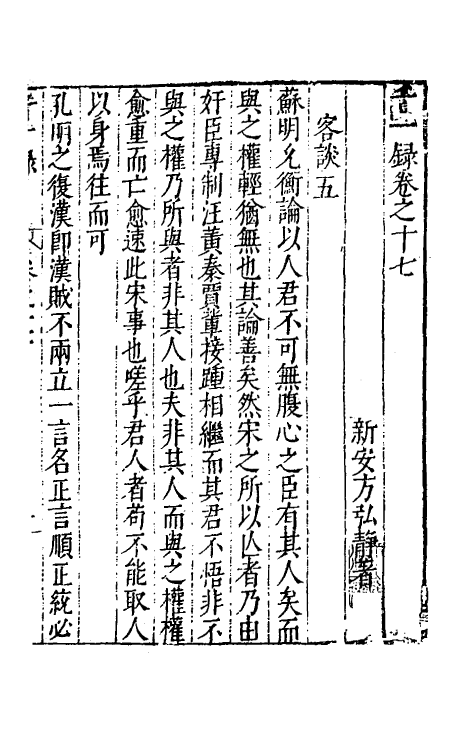 一録卷之十七
新安方弘靜著
客談五
蘇明允衡論以人君不可無腹心之臣有其人矣而
與之權輕猶無也其論善矣然宋之所以亾者乃由
奸臣專制汪黃秦賈軰接踵相繼而其君不悟非不
與之權乃所與者非其人也夫非其人而與之權權
愈重而亡愈速此宋事也嗟乎君人者苟不能取人
以身焉往而可
孔明之復漢即漢賊不兩立一言名正言順正統必